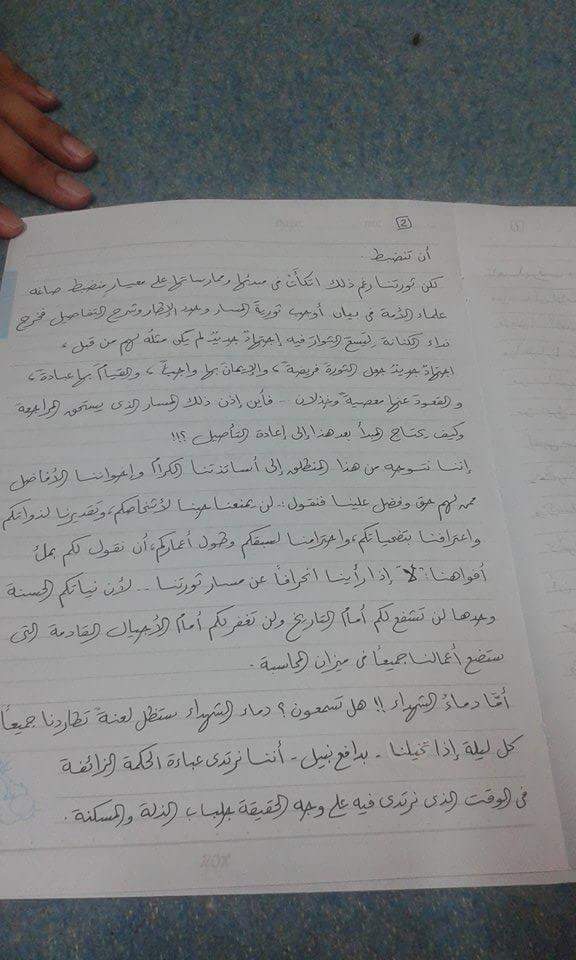 2
أن تنضبط.
لكن ثورتنا رغم ذلك اتكأت فى مبدئها وممارساتها على معيار منضبط صاغه
علماء الأمة فى بيان أوجب ثورية المسار وحدد الإطار وشرح التفاصيل فخرج
نداء الكنانة ليسع الثوار فيه اجتهادٌ جديدٌ لم يكن مثله لهم من قبل،
اجتهادٌ جديدٌ جعل الثورة فريضة، والإيمان بها واجباً، والقيام بها عبادة،
والقعود عنها معصية وخذلان .. فأين إذن ذلك المسار الذى يستحق المراجعة
وكيف يحتاج المبدأ بعد هذا إلى إعادة التأصيل ؟!!
إننا نتوجه من هذا المنطلق إلى أساتذتنا الكرام وإخواننا الأفاضل
ممن لهم حق وفضل علينا فنقول: لن يمنعنا حبنا لأشخاصكم، وتقديرنا لذواتكم
واعترافنا بتضحياتكم، واحترامنا لسبقكم وطول أعماركم، أن نقول لكم بملء
أفواهنا: "لا" إذا رأينا انحرافاً عن مسار ثورتنا .. لأن نياتكم الحسنة
وحدها لن تشفع لكم أمام التاريخ ولن تغفر لكم أمام الأجيال القادمة التى
ستضع أعمالنا جميعاً فى ميزان المحاسبة.
أمّا دماءُ الشهداء !! هل تسمعون؟ دماء الشهداء ستظل لعنةً تطاردنا جميعاً
كل ليلة إذا تخيلنا - بدافع نبيل - أننا نرتدى عباءة الحكمة الزائفة
فى الوقت الذى نرتدى فيه على وجه الحقيقة جلباب الذلة والمسكنة.